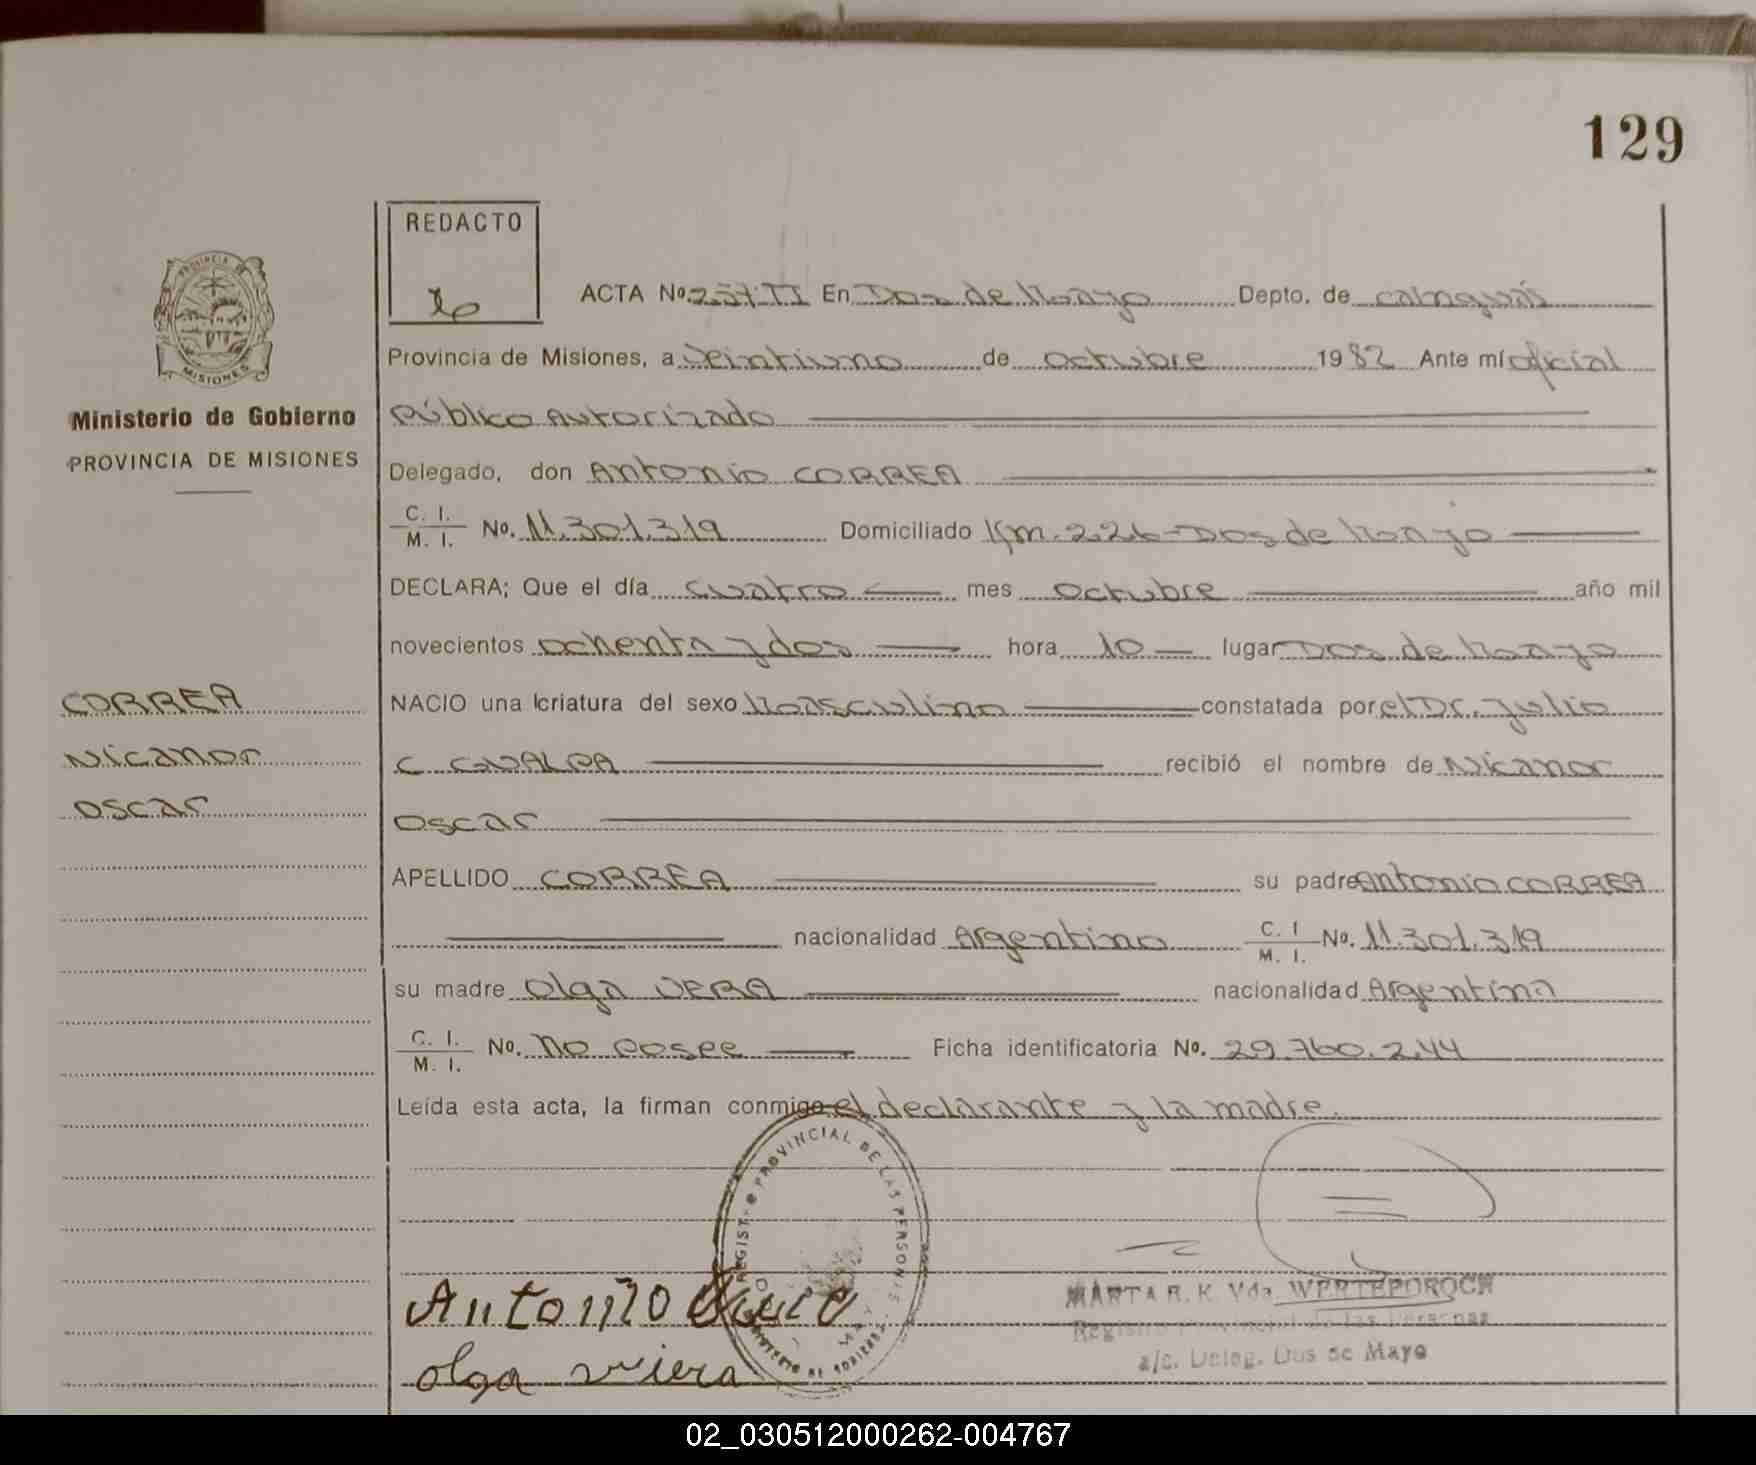 129
REDACTO
ACTA No. 257 TI En Dos de Mayo Depto. de cainguás
Provincia de Misiones, a Veintiuno de octubre 1982 Ante mí oficial
Ministerio de Gobierno
PROVINCIA DE MISIONES
PROVINCIA DE
MISIONES
Público Autorizado
Delegado, don Antonio CORREA
C. I.
M. I. No. 11.301.319 Domiciliado Km. 226-Dos de Mayo
DECLARA; Que el día cuatro mes octubre año mil
novecientos ochenta y dos hora 10 lugar Dos de Mayo
CORREA
Nicanor
oscar
NACIO una criatura del sexo Masculino constatada por el Dr. Julio
C GUALPA recibió el nombre de Nicanor
oscar
APELLIDO CORREA su padre Antonio CORREA
nacionalidad Argentino C. I
M. I. No. 11.301.319
su madre Olga VERA nacionalidad Argentina
C. I.
M. I. No. no posee Ficha identificatoria No. 29.760.244
Leída esta acta, la firman conmigo el declarante y la madre.
REGIST. PROVINCIAL DE LAS PERSONAS
Antonio
olga viera
MARTA R. K. Vda. WERTEPOROCH
Registro Provincial de las Personas
a/c. Deleg. Dos de Mayo
02_030512000262-004767